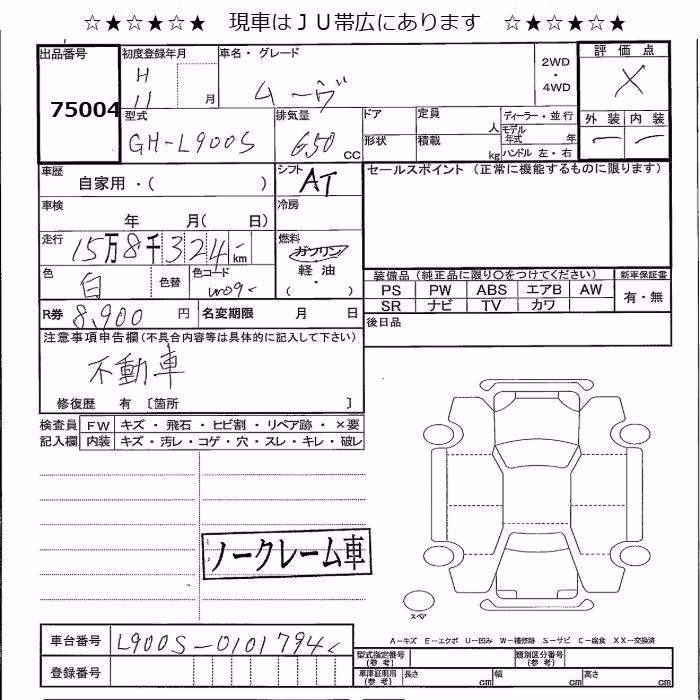 ☆★☆★☆★　現車はＪＵ帯広にあります　☆★☆★☆★
出品番号 75004
初度登録年月 H 11 月
車名・グレード ムーヴ
2WD ・ 4WD
評価点 X
外装 ー 内装 ー
型式 GH-L900S
排気量 650 CC
ドア 形状
定員 人
積載 kg
ディーラー・並行
モデル年式 年
ハンドル 左・右
車歴 自家用・( )
シフト AT
セールスポイント (正常に機能するものに限ります)
車検 年 月( 日)
冷房
走行 15万8千324 km
燃料 ガソリン 軽油 ( ・ )
色 白 色替 色コード W09
装備品 (純正品に限り○をつけてください) 新車保証書
PS PW ABS エアB AW 有・無
SR ナビ TV カワ
R券 8,900 円 名変期限 月 日
後日品
注意事項申告欄 (不具合内容等は具体的に記入して下さい)
不動車
修復歴 有 〔箇所 〕
検査員記入欄
FW キズ・飛石・ヒビ割・リペア跡・×要
内装 キズ・汚レ・コゲ・穴・スレ・キレ・破レ
ノークレーム車
スペア
A－キズ E－エクボ U－凹み W－補修跡 S－サビ C－腐食 XX－交換済
車台番号 L900S-0101794
登録番号
型式指定番号 (参考) 類別区分番号 (参考)
車庫証明用 (参考) 長さ cm 幅 cm 高さ cm